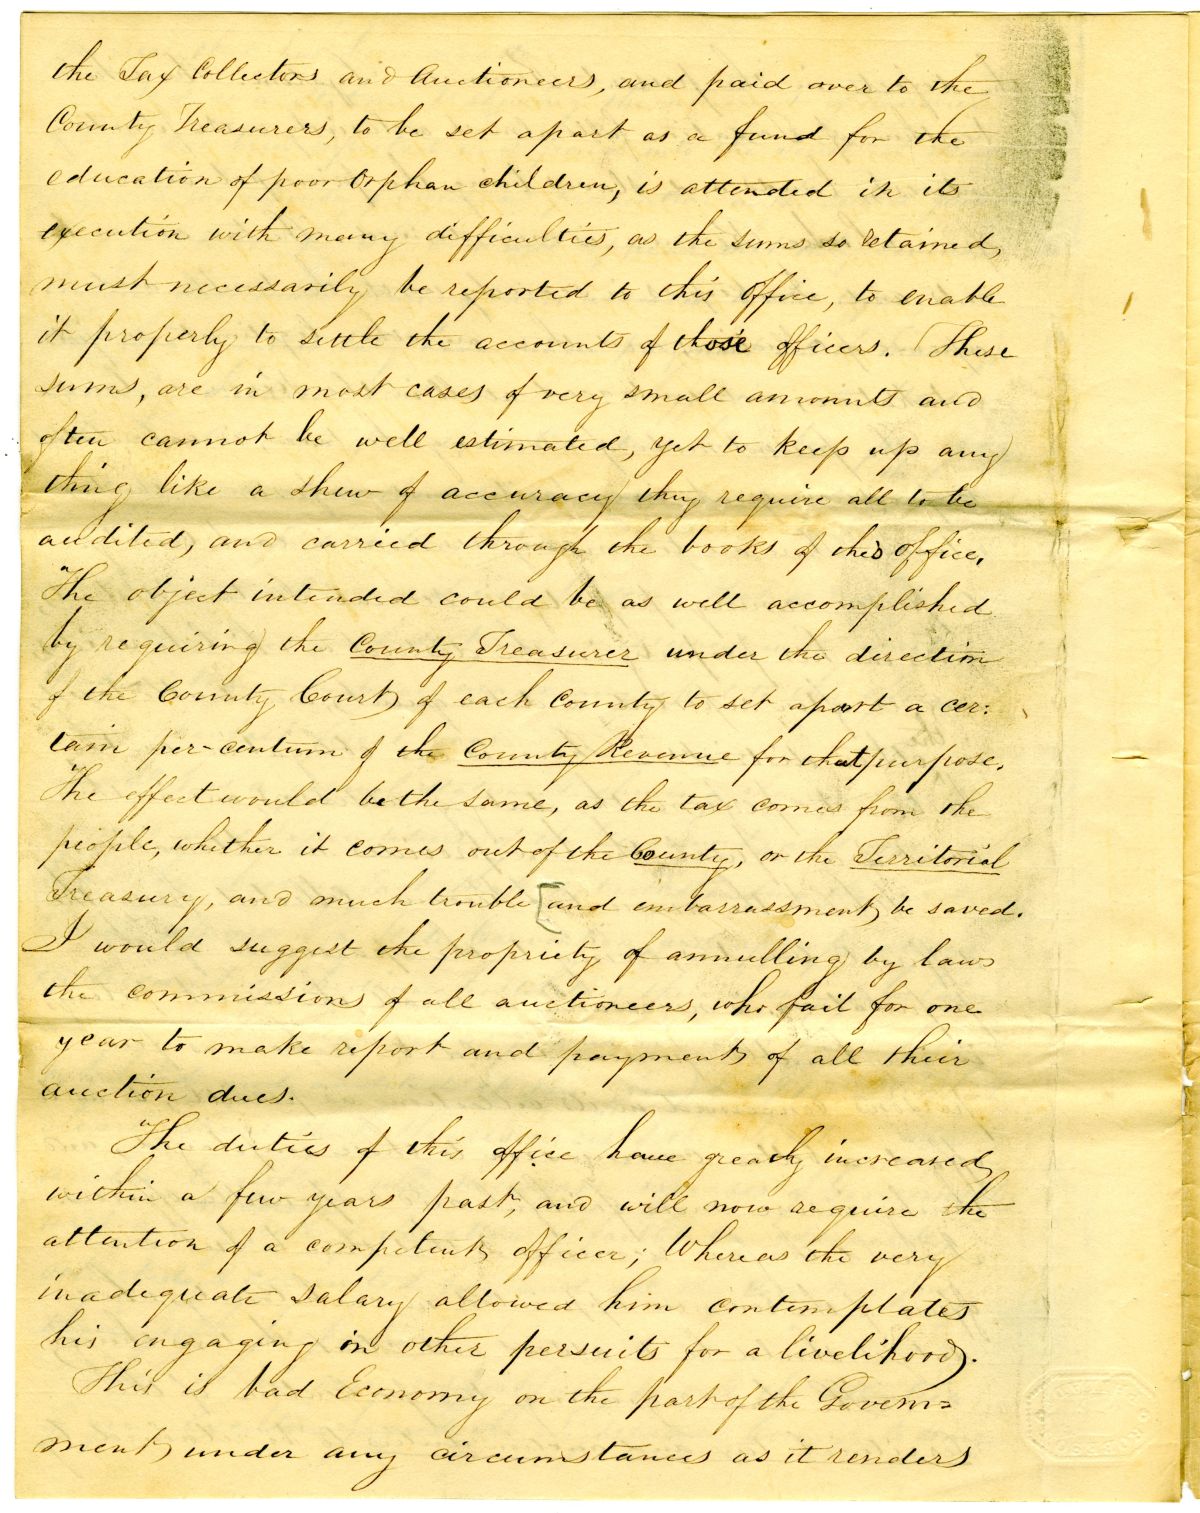 the Tax Collectors and Auctioneers, and paid over to the
County Treasurers, to be set apart as a fund for the
education of poor Orphan children, is attended in its
execution with many difficulties, as the sums so retained,
must necessarily be reported to this office, to enable
it properly to settle the accounts of those officers. These
sums, are in most cases of very small amounts and
often cannot be well estimated, yet to keep up any
thing like a shew of accuracy they require all to be
audited, and carried through the books of this office.
The object intended could be as well accomplished
by requiring the County Treasurer under the direction
of the County Court of each county to set apart a cer:
tain per-centum of the County Revenue for that purpose.
The effect would be the same, as the tax comes from the
people, whether it comes out of the County, or the Territorial
Treasury, and much trouble [and embarrassment, be saved.
I would suggest the propriety of annulling by laws
the commissions of all auctioneers, who fail for one
year to make report and payment of all their
auction dues.
The duties of this office have greatly increased
within a few years past, and will now require the
attention of a competent officer; Whereas the very
inadequate salary allowed him contemplates
his engaging in other persuits for a livelihood.
This is bad Economy on the part of the Govern=
ment, under any circumstances as it renders